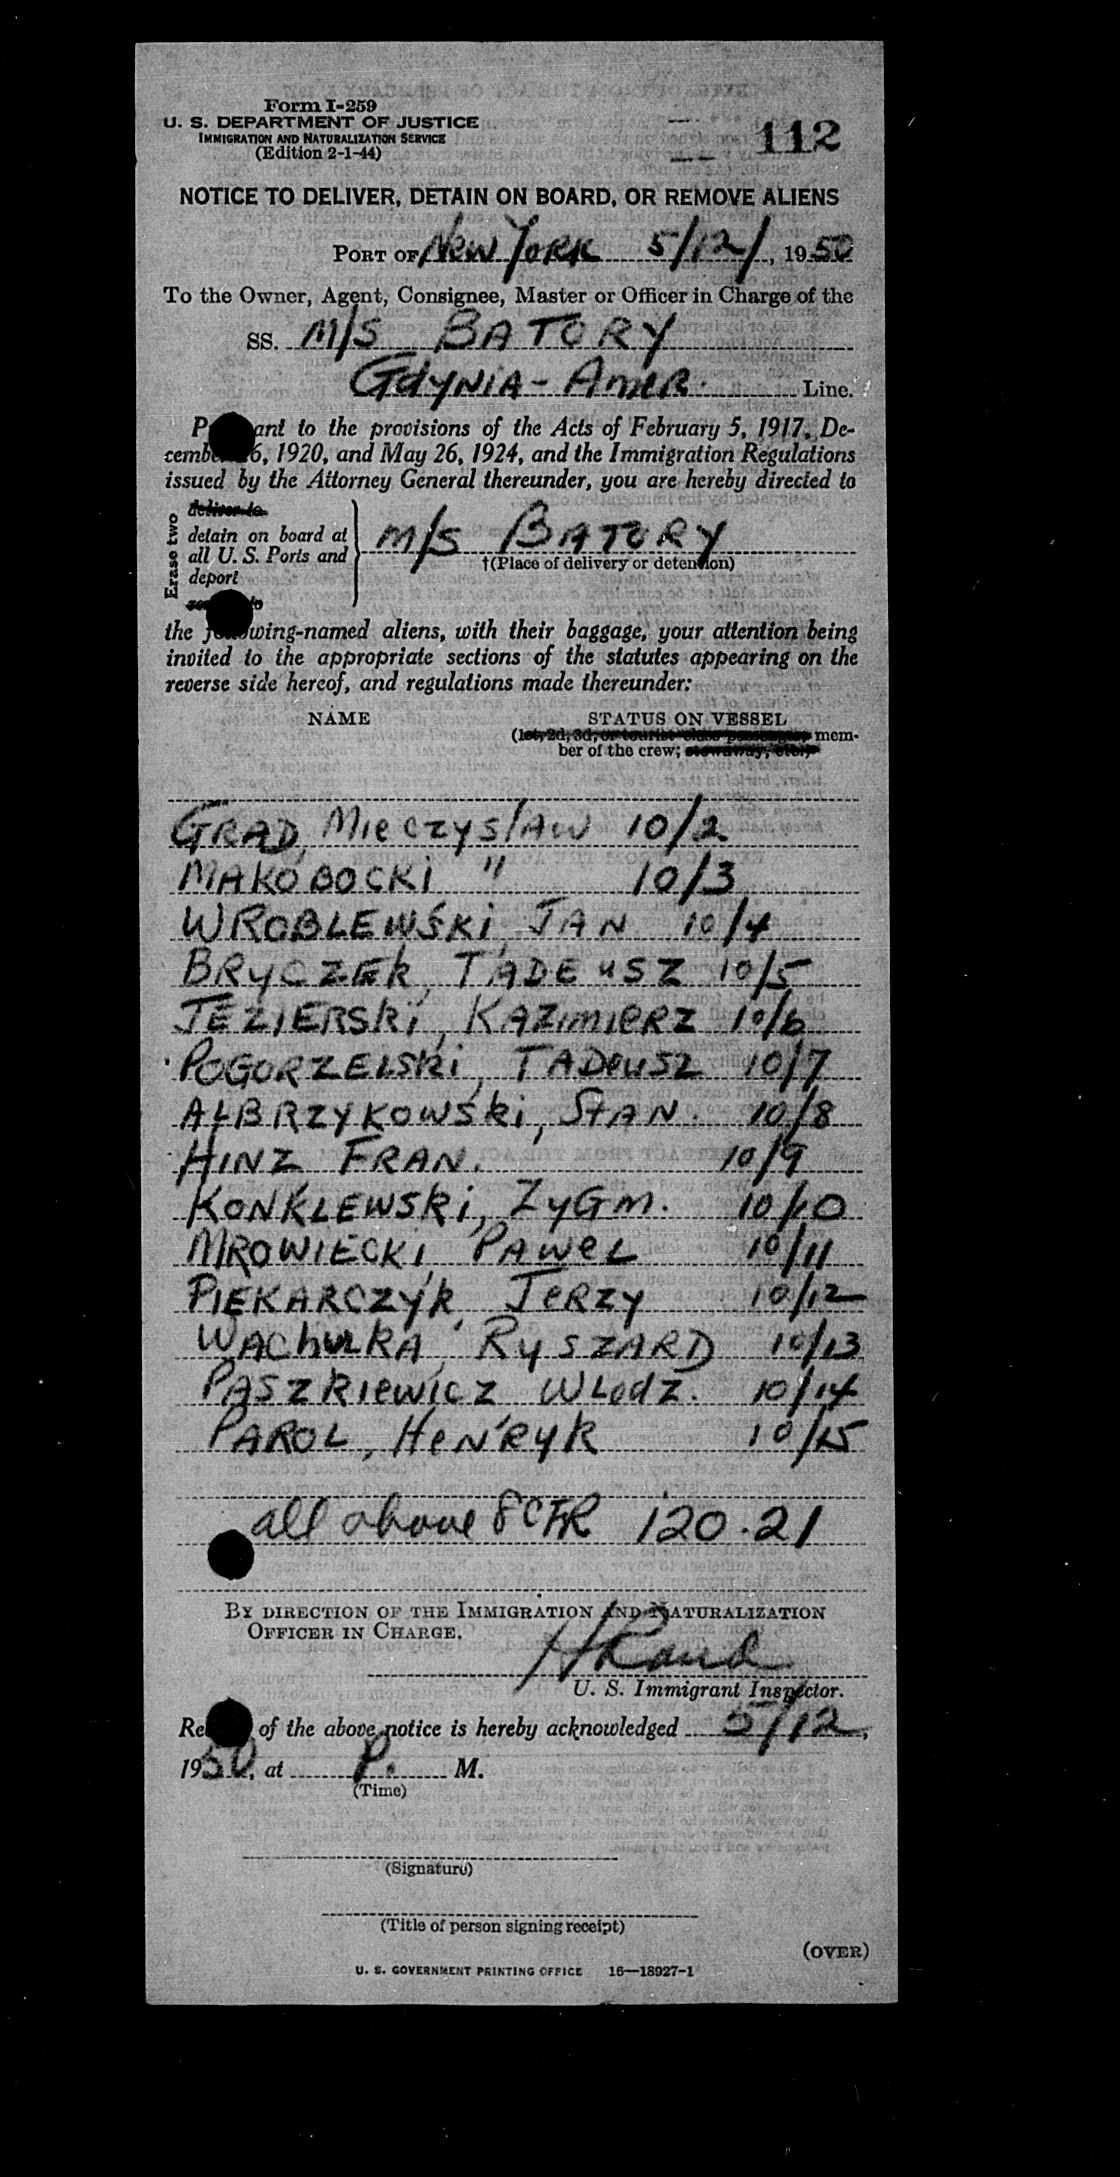 Form I-259
U. S. DEPARTMENT OF JUSTICE
IMMIGRATION AND NATURALIZATION SERVICE
(Edition 2-1-44)
112
NOTICE TO DELIVER, DETAIN ON BOARD, OR REMOVE ALIENS
PORT OF New York 5/12/, 1950
To the Owner, Agent, Consignee, Master or Officer in Charge of the
SS. M/S BATORY
GDYNIA - AMER. Line.
P ant to the provisions of the Acts of February 5, 1917, De-
cembe 26, 1920, and May 26, 1924, and the Immigration Regulations
issued by the Attorney General thereunder, you are hereby directed to
Erase two
deliver to
detain on board at
all U. S. Ports and
deport
M/S BATORY
†(Place of delivery or detention)
the following-named aliens, with their baggage, your attention being
invited to the appropriate sections of the statutes appearing on the
reverse side hereof, and regulations made thereunder:
NAME STATUS ON VESSEL
(1st, 2d, 3d, or tourist class passenger, mem-
ber of the crew; stowaway, etc.)
GRAD, MieczysłAW 10/2
MAKOBOCKi " 10/3
WROBLEWSKi, JAN 10/4
BRYCZEK, TADEUSZ 10/5
JEZIERSKi, KAZIMIERZ 10/6
POGORZELSKi, TADEUSZ 10/7
ALBRZYKOWSKi, STAN. 10/8
HINZ, FRAN. 10/9
KONKLEWSKi, ZYGM. 10/10
MROWIECKi, PAWEL 10/11
PIEKARCZYK, JERZY 10/12
WACHULKA, RYSZARD 10/13
PASZKIEWICZ WLODZ. 10/14
PAROL, HENRYK 10/15
all above 8 CFR 120.21
BY DIRECTION OF THE IMMIGRATION AND NATURALIZATION
OFFICER IN CHARGE.
U. S. Immigrant Inspector.
Re of the above notice is hereby acknowledged 5/12,
1950, at P. M.
(Time)
(Signature)
(Title of person signing receipt)
(OVER)
U. S. GOVERNMENT PRINTING OFFICE 16—18927-1